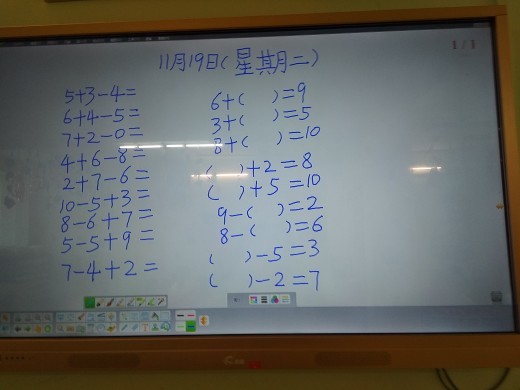 1/1
11月19日(星期二)
5+3-4=
6+4-5=
7+2-0=
4+6-8=
2+7-6=
10-5+3=
8-6+7=
5-5+9=
7-4+2=
6+( )=9
3+( )=5
8+( )=10
( )+2=8
( )+5=10
9-( )=2
8-( )=6
( )-5=3
( )-2=7